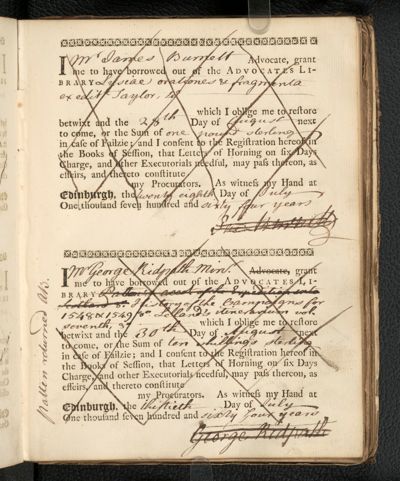 I Mr James Burnett Advocate, grant
me to have borrowed out of the ADVOCATES LI-
BRARY Lysiae orationes & fragmenta
ex edit. Taylor, 4o
which I oblige me to restore
betwixt and the 28th Day of August next
to come, or the Sum of one pound sterling
in case of Failzie; and I consent to the Registration hereof in
the Books of Session, that Letters of Horning on six Days
Charge, and other Executorials needful, may pass thereon, as
effeirs, and thereto constitute
my Procurators. As witness my Hand at
Edinburgh, the twenty eighth Day of July
One thousand seven hundred and sixty four years
Jas Burnett
I Mr George Ridpath Min. Advocate, grant
me to have borrowed out of the ADVOCATES LI-
BRARY Patten's account of the Expedition into
Scotland 8o. History of the Campaigns for
1548 & 1549 8o Leland's itinerarium vol.
seventh, 8o which I oblige me to restore
betwixt and the 30th Day of August next
to come, or the Sum of ten shillings sterling
in case of Failzie; and I consent to the Registration hereof in
the Books of Session, that Letters of Horning on six Days
Charge, and other Executorials needful, may pass thereon, as
effeirs, and thereto constitute
my Procurators. As witness my Hand at
Edinburgh, the thirtieth Day of July
One thousand seven hundred and sixty four years
George Ridpath
Patten returned